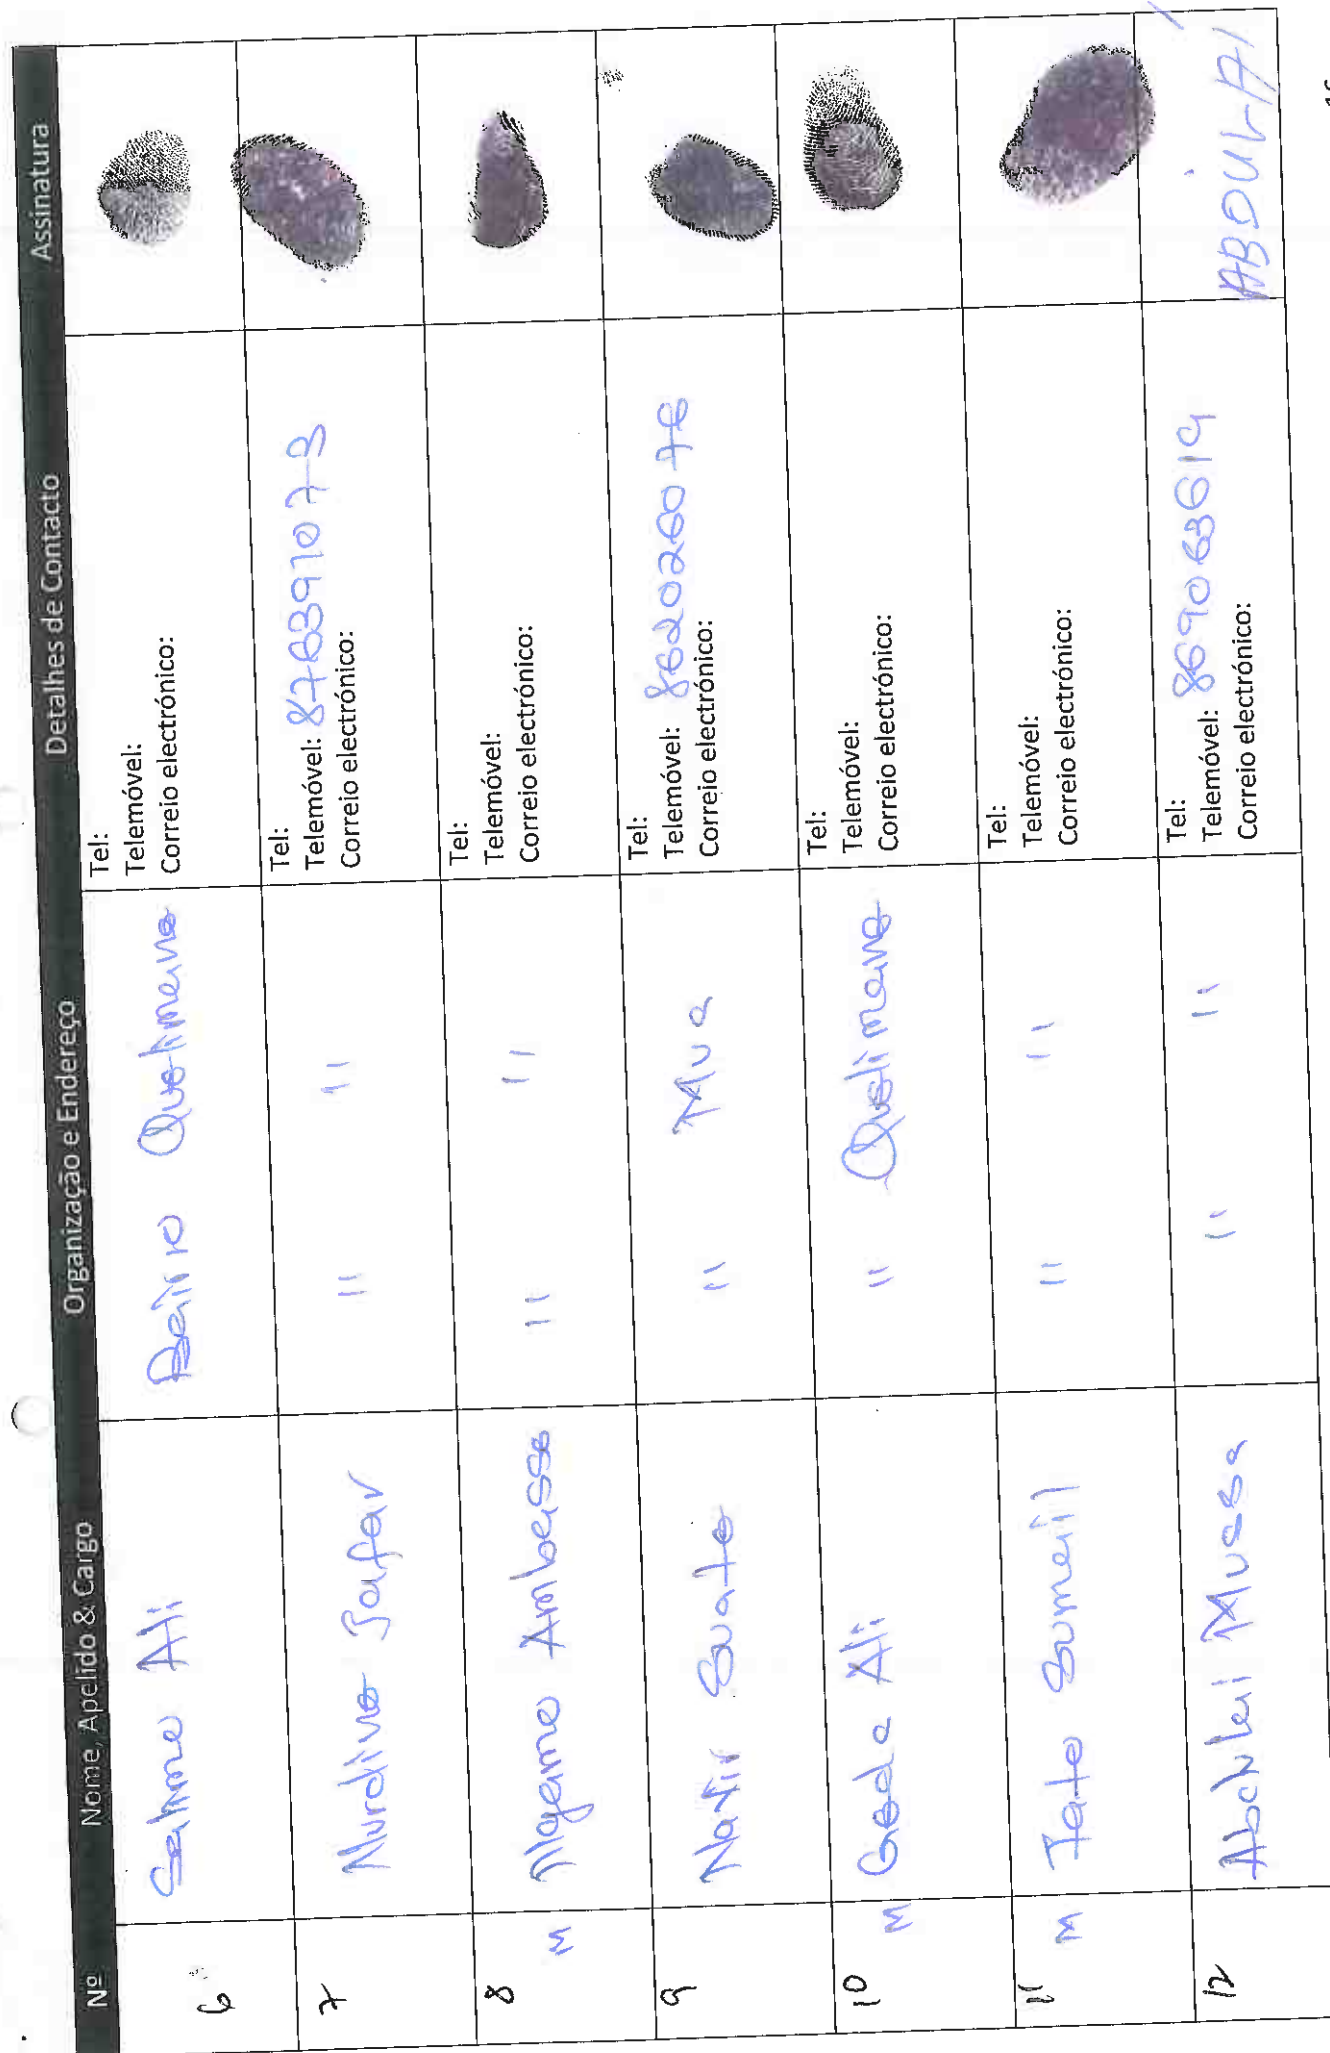 Nº Nome, Apelido & Cargo Organização e Endereço Detalhes de Contacto Assinatura
6 Salimo Ali Bairro Quelimane
Tel:
Telemóvel:
Correio electrónico:
7 Nurdine Jafar 11 11
Tel:
Telemóvel: 876391073
Correio electrónico:
8 M Ambasse 11 11
Tel:
Telemóvel:
Correio electrónico:
9 Suate 11 Mua
Tel:
Telemóvel: 862026076
Correio electrónico:
10 M Ali 11 Quelimane
Tel:
Telemóvel:
Correio electrónico:
11 M Sumail 11 11
Tel:
Telemóvel:
Correio electrónico:
12 Abdulai Mussa 11 11
Tel:
Telemóvel: 869063619
Correio electrónico:
ABDULAI